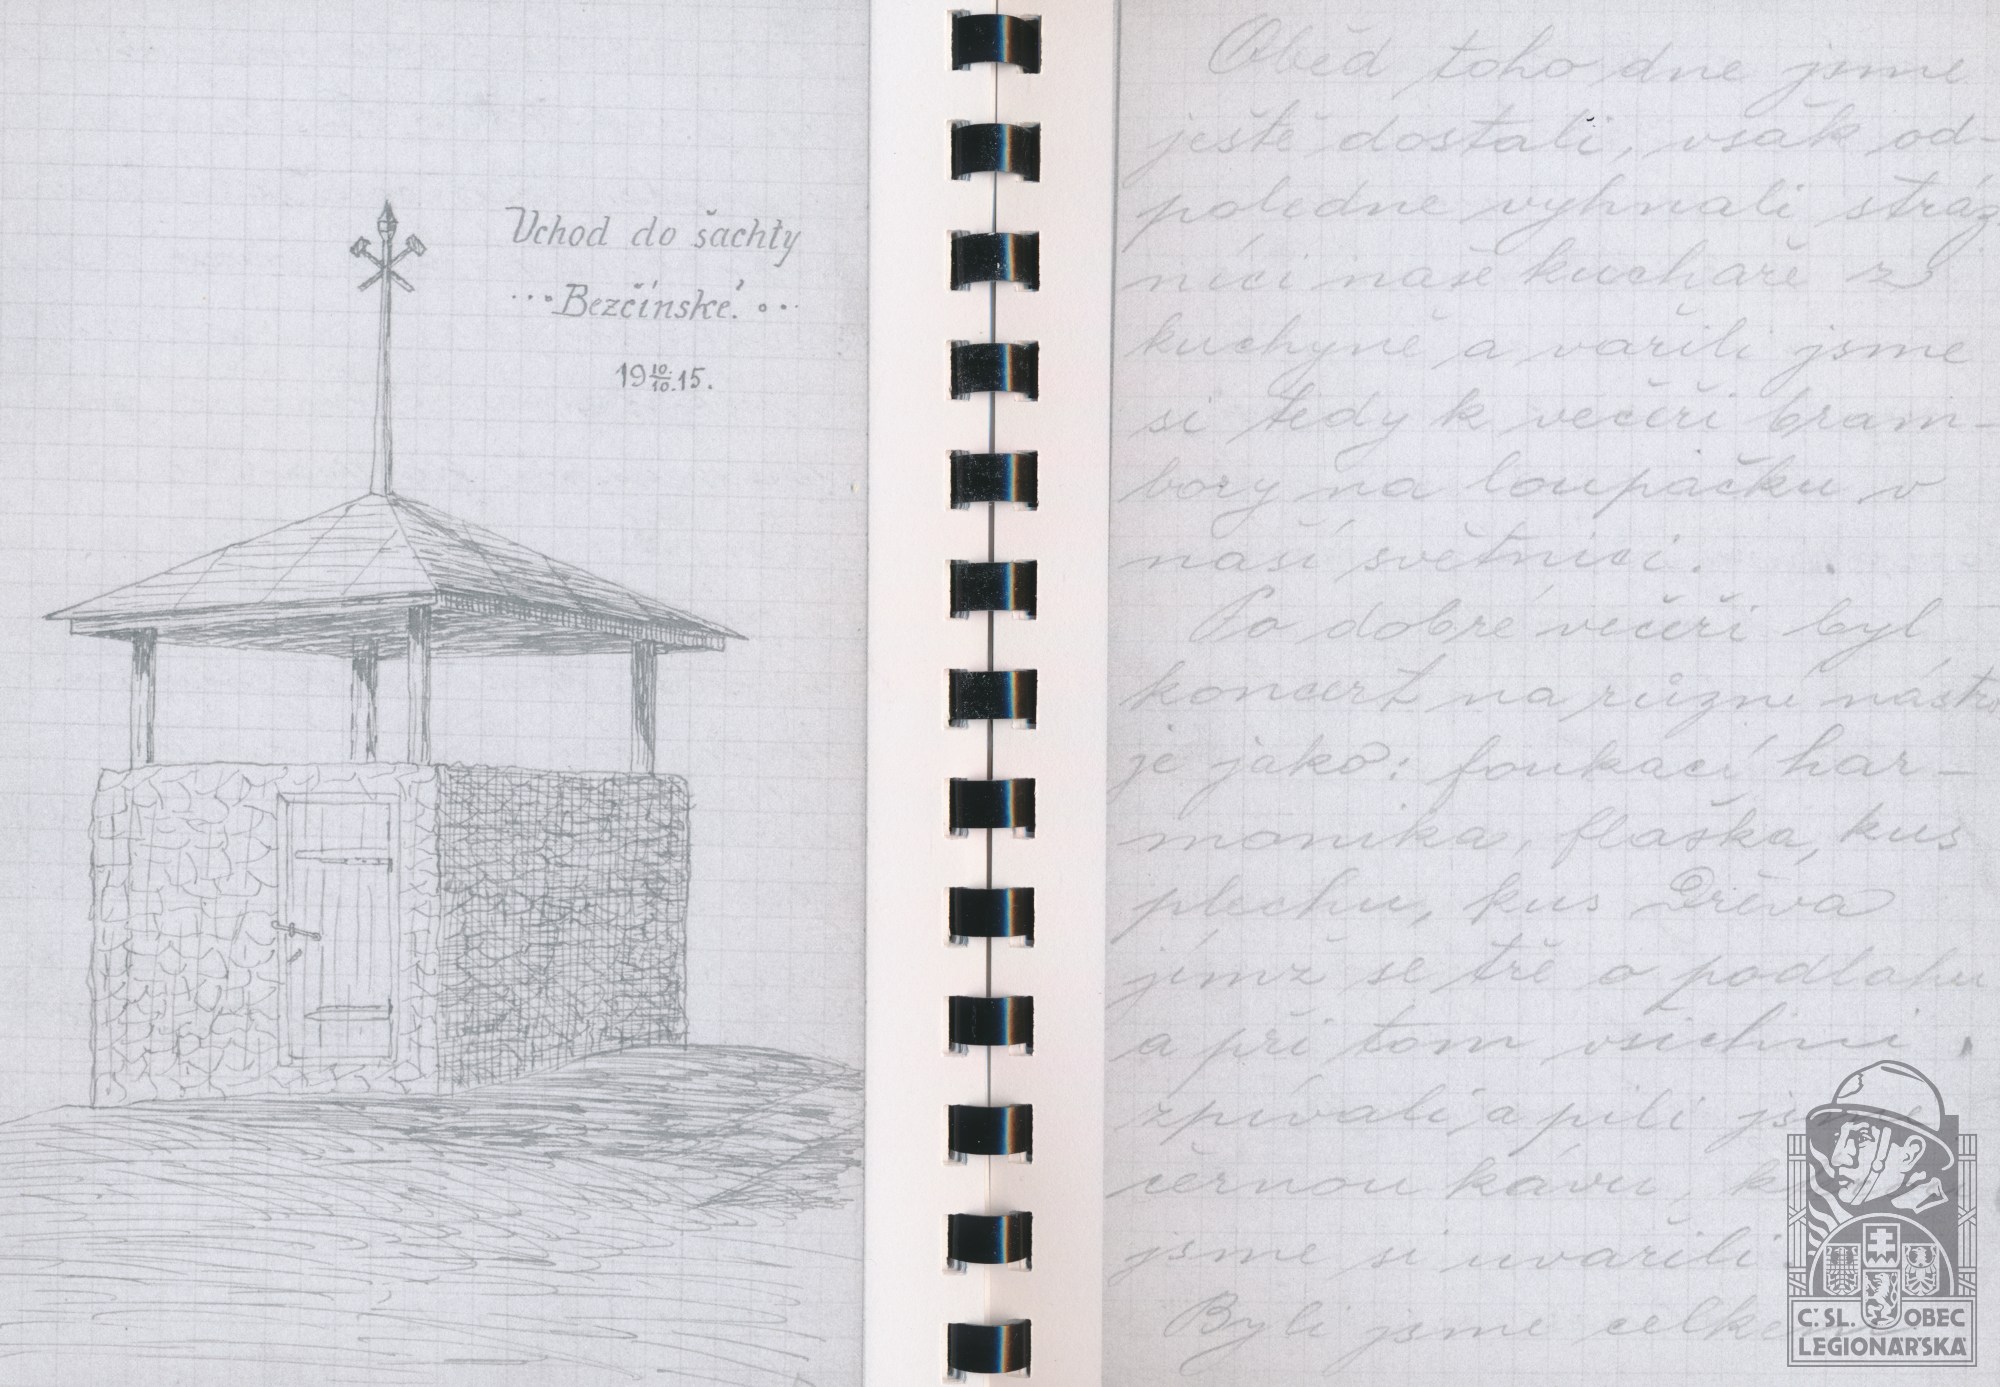 Vchod do šachty
...Bezčínské.
19 10./10. 15.
Oběd toho dne jsme
ještě dostali, však od-
poledne vyhnali stráž
níci naše kuchaře z
kuchyně a vařili jsme
si tedy k večeři bram-
bory na loupačku v
naší světnici.
Po dobré večeři byl
koncert na různé nástro
je jako: foukací har-
monika, flaška, kus
plechu, kus dřeva
jímž se tře o podlahu
a při tom všichni
zpívali, a pili jsme
černou kávu,
jsme si uvařili
Byli jsme
Č.SL. OBEC
LEGIONÁŘSKÁ